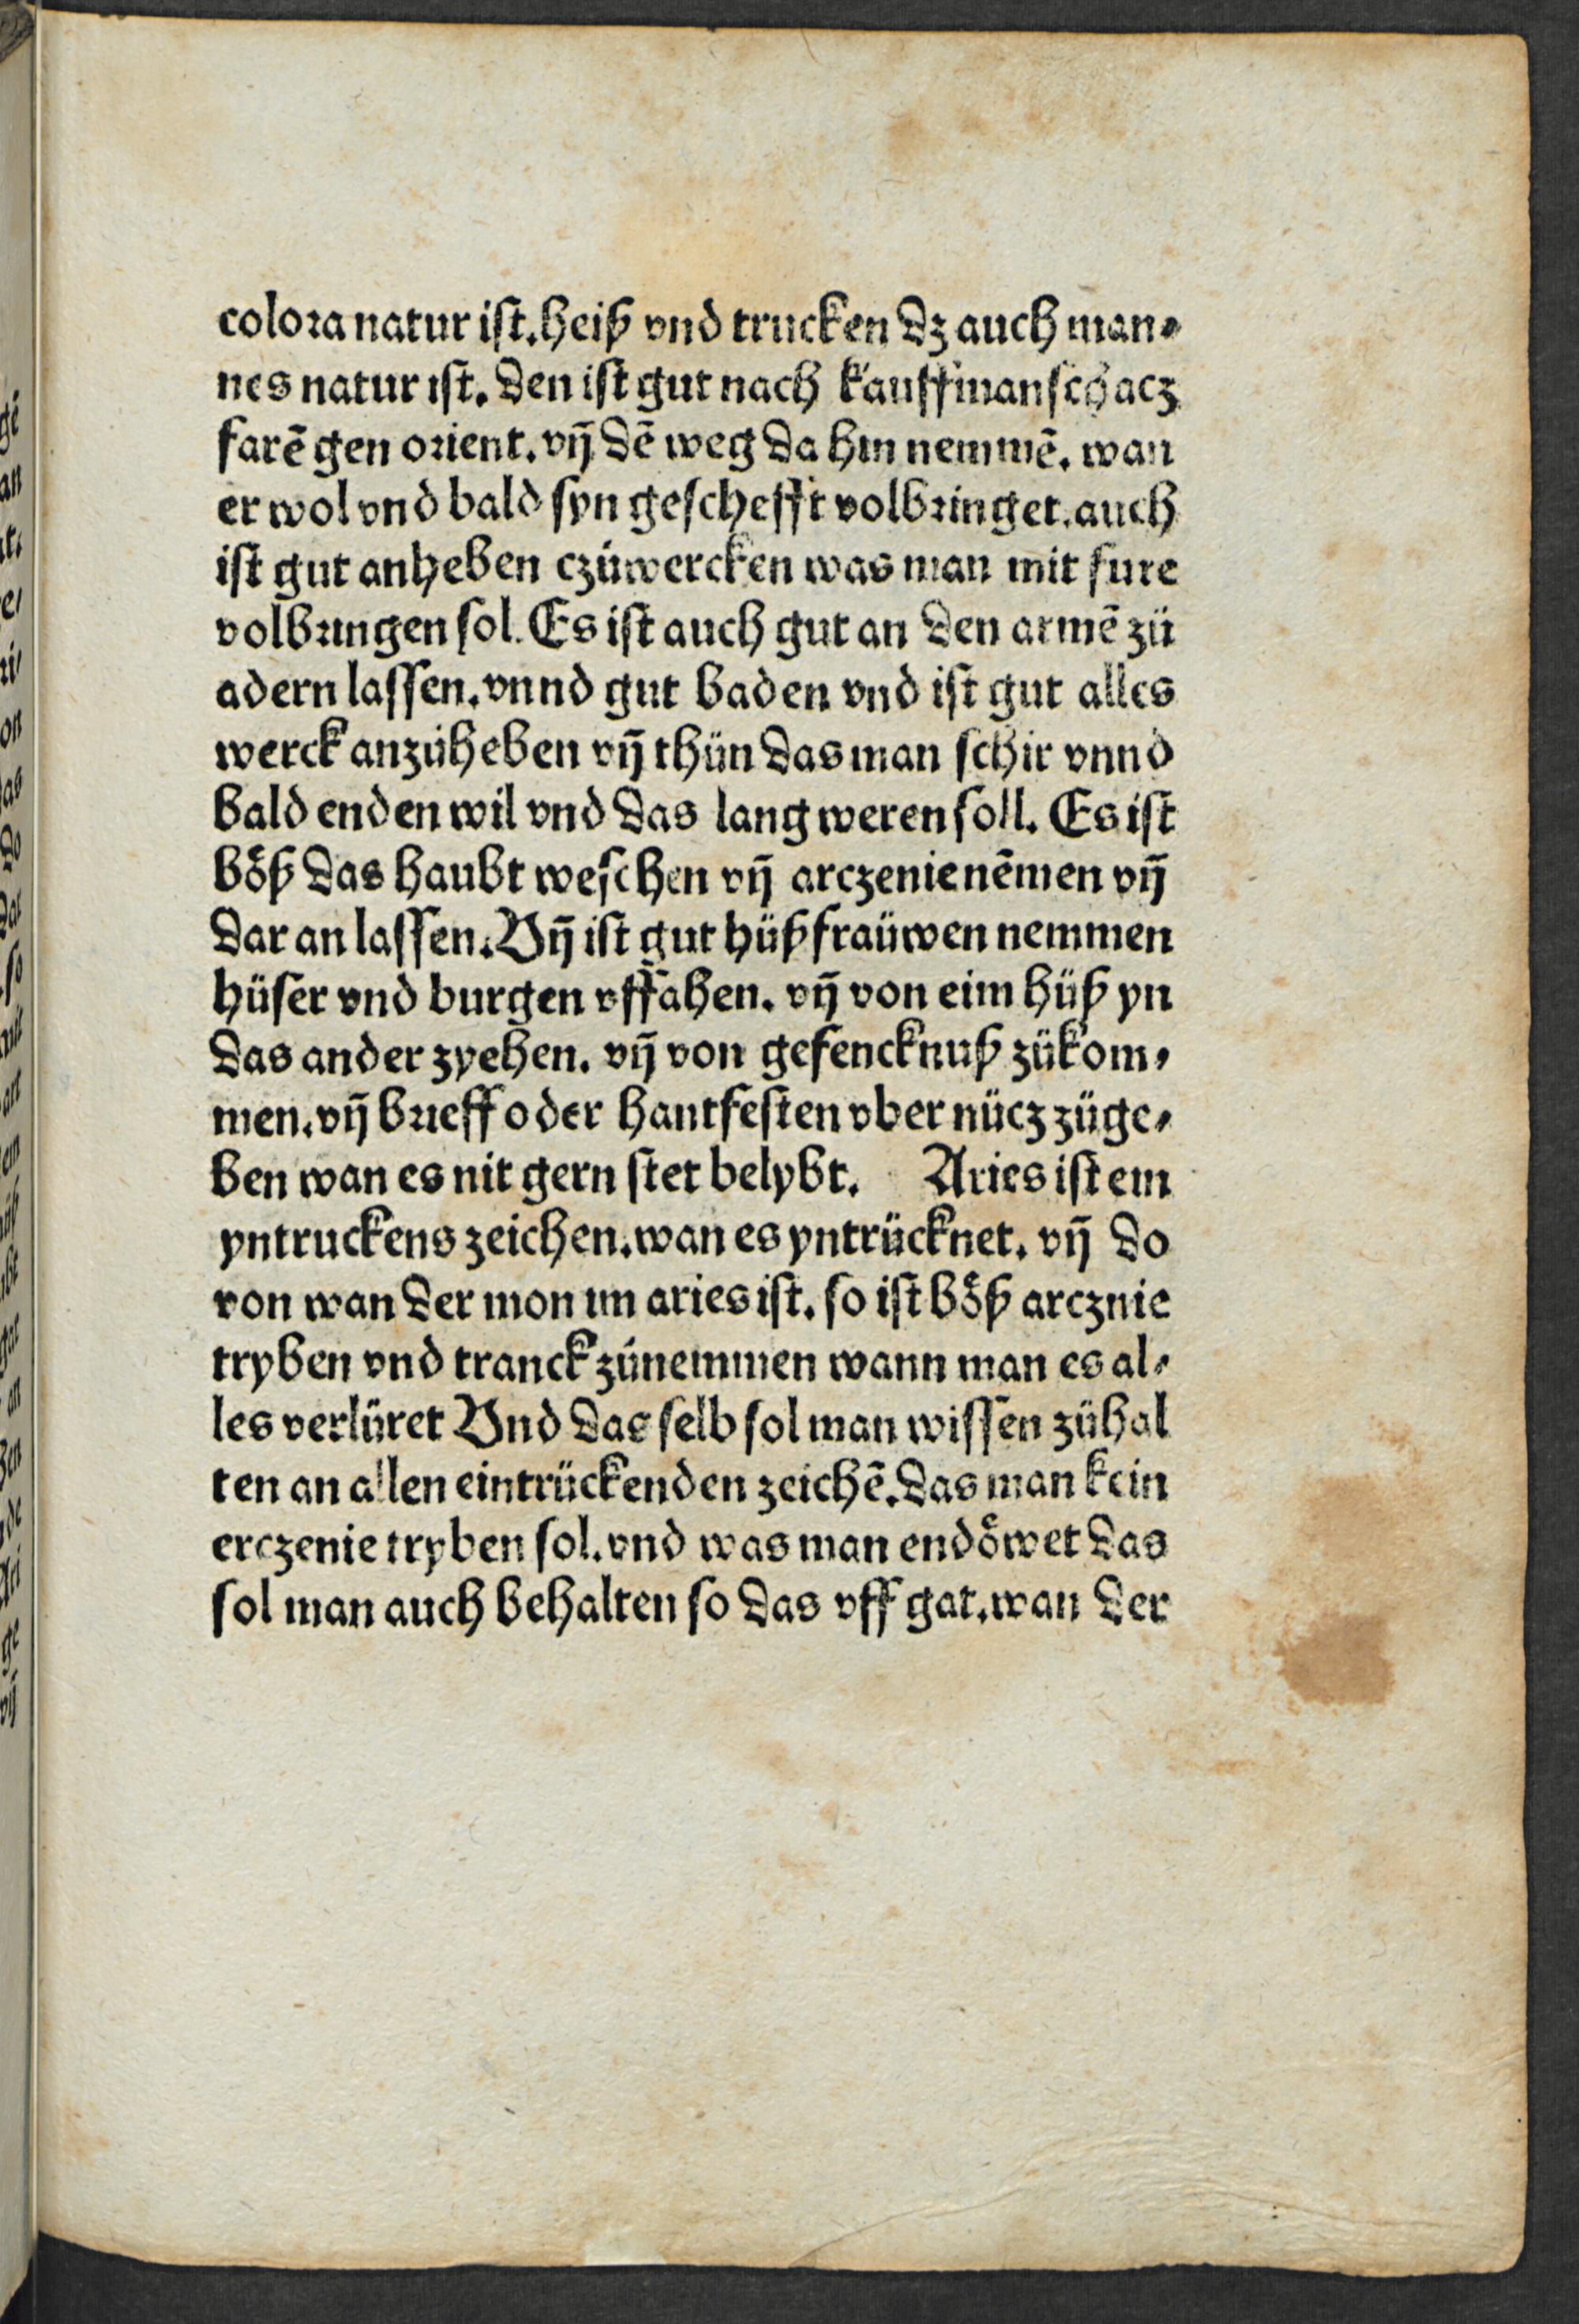 colora natur ist. heiß vnd trucken dz auch man⸗
nes natur ist. den ist gut nach kauffmanschacz
farē gen orient. vn̄ dē weg da hin nemmē. wan
er wol vnd bald syn geschefft volbringet. auch
ist gut anheben czüwercken was man mit fure
volbringen sol. Es ist auch gut an den armē zü
adern lassen. vnnd gut baden vnd ist gut alles
werck anzüheben vn̄ thün das man schir vnnd
bald enden wil vnd das lang weren soll. Es ist
böß das haubt weschen vn̄ arczenie nēmen vn̄
dar an lassen. Vn̄ ist gut hüßfraüwen nemmen
hüser vnd burgen vffahen. vn̄ von eim hüß yn
das ander zyehen. vn̄ von gefencknuß zükom⸗
men. vn̄ brieff oder hantfesten vber nücz züge⸗
ben wan es nit gern stet belybt. Aries ist ein
yntruckens zeichen. wan es yntrücknet. vn̄ do
von wan der mon im aries ist. so ist böß arcznie
tryben vnd tranck zünemmen wann man es al⸗
les verlüret Vnd das selb sol man wissen zühal
ten an allen eintrückenden zeichē. das man kein
erczenie tryben sol. vnd was man endöwet das
sol man auch behalten so das vff gat. wan der